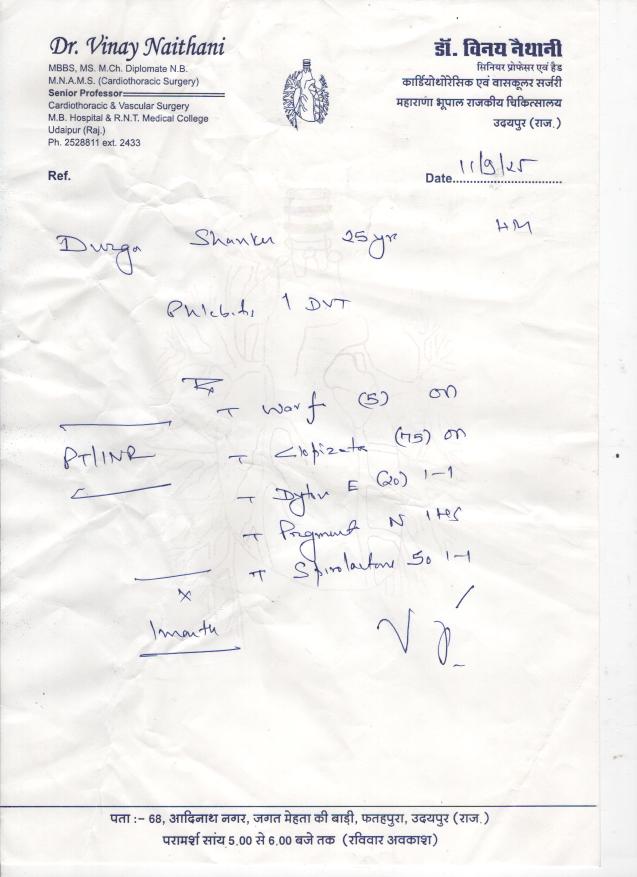 Dr. Vinay Naithani
MBBS, MS. M.Ch. Diplomate N.B.
M.N.A.M.S. (Cardiothoracic Surgery)
Senior Professor
Cardiothoracic & Vascular Surgery
M.B. Hospital & R.N.T. Medical College
Udaipur (Raj.)
Ph. 2528811 ext. 2433
डॉ. विनय नैथानी
सिनियर प्रोफेसर एवं हैड
कार्डियोथोरेसिक एवं वासकूलर सर्जरी
महाराणा भूपाल राजकीय चिकित्सालय
उदयपुर (राज.)
Ref.
Date 11/9/25
Durga Shanker 25 yr
DVT
Rx
T Warf (5) on
PT/INR
T (75) on
T Dytor E (20) 1-1
T N
T 50 1-1
x
1 month
पता :- 68, आदिनाथ नगर, जगत मेहता की बाड़ी, फतहपुरा, उदयपुर (राज.)
परामर्श सांय 5.00 से 6.00 बजे तक (रविवार अवकाश)